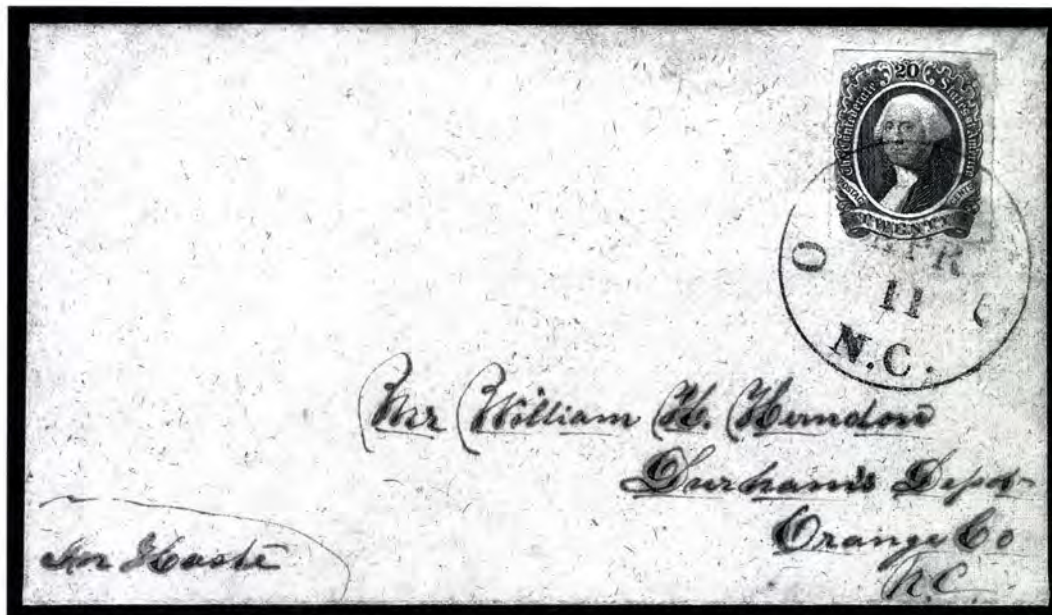 20
The Confederate States of America
POSTAGE CENTS
TWENTY
O
APR
11 6
N.C.
Mr William H. Herndon
Durham's Depot
Orange Co
N.C.
In Haste